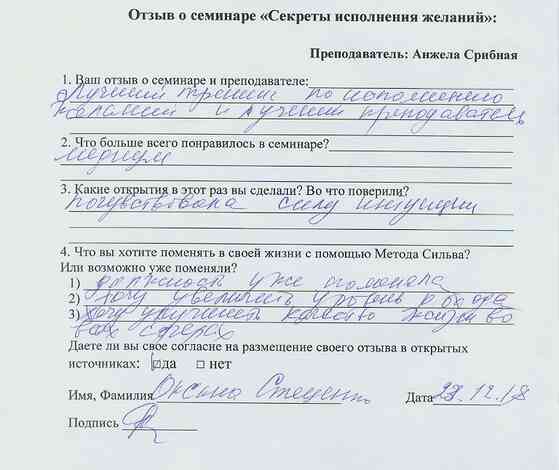 Отзыв о семинаре «Секреты исполнения желаний»:
Преподаватель: Анжела Срибная
1. Ваш отзыв о семинаре и преподавателе:
Лучший тренинг по исполнению
желаний и лучший преподаватель
2. Что больше всего понравилось в семинаре?
Медиум
3. Какие открытия в этот раз вы сделали? Во что поверили?
почувствовала силу интуиции
4. Что вы хотите поменять в своей жизни с помощью Метода Сильва?
Или возможно уже поменяли?
1) должность уже поменяла
2) Хочу увеличить уровень дохода
3) Хочу улучшить качество жизни во
всех сферах
Даете ли вы свое согласие на размещение своего отзыва в открытых
источниках: ☑да □ нет
Имя, Фамилия Оксана Стеценко Дата 23.12.18
Подпись